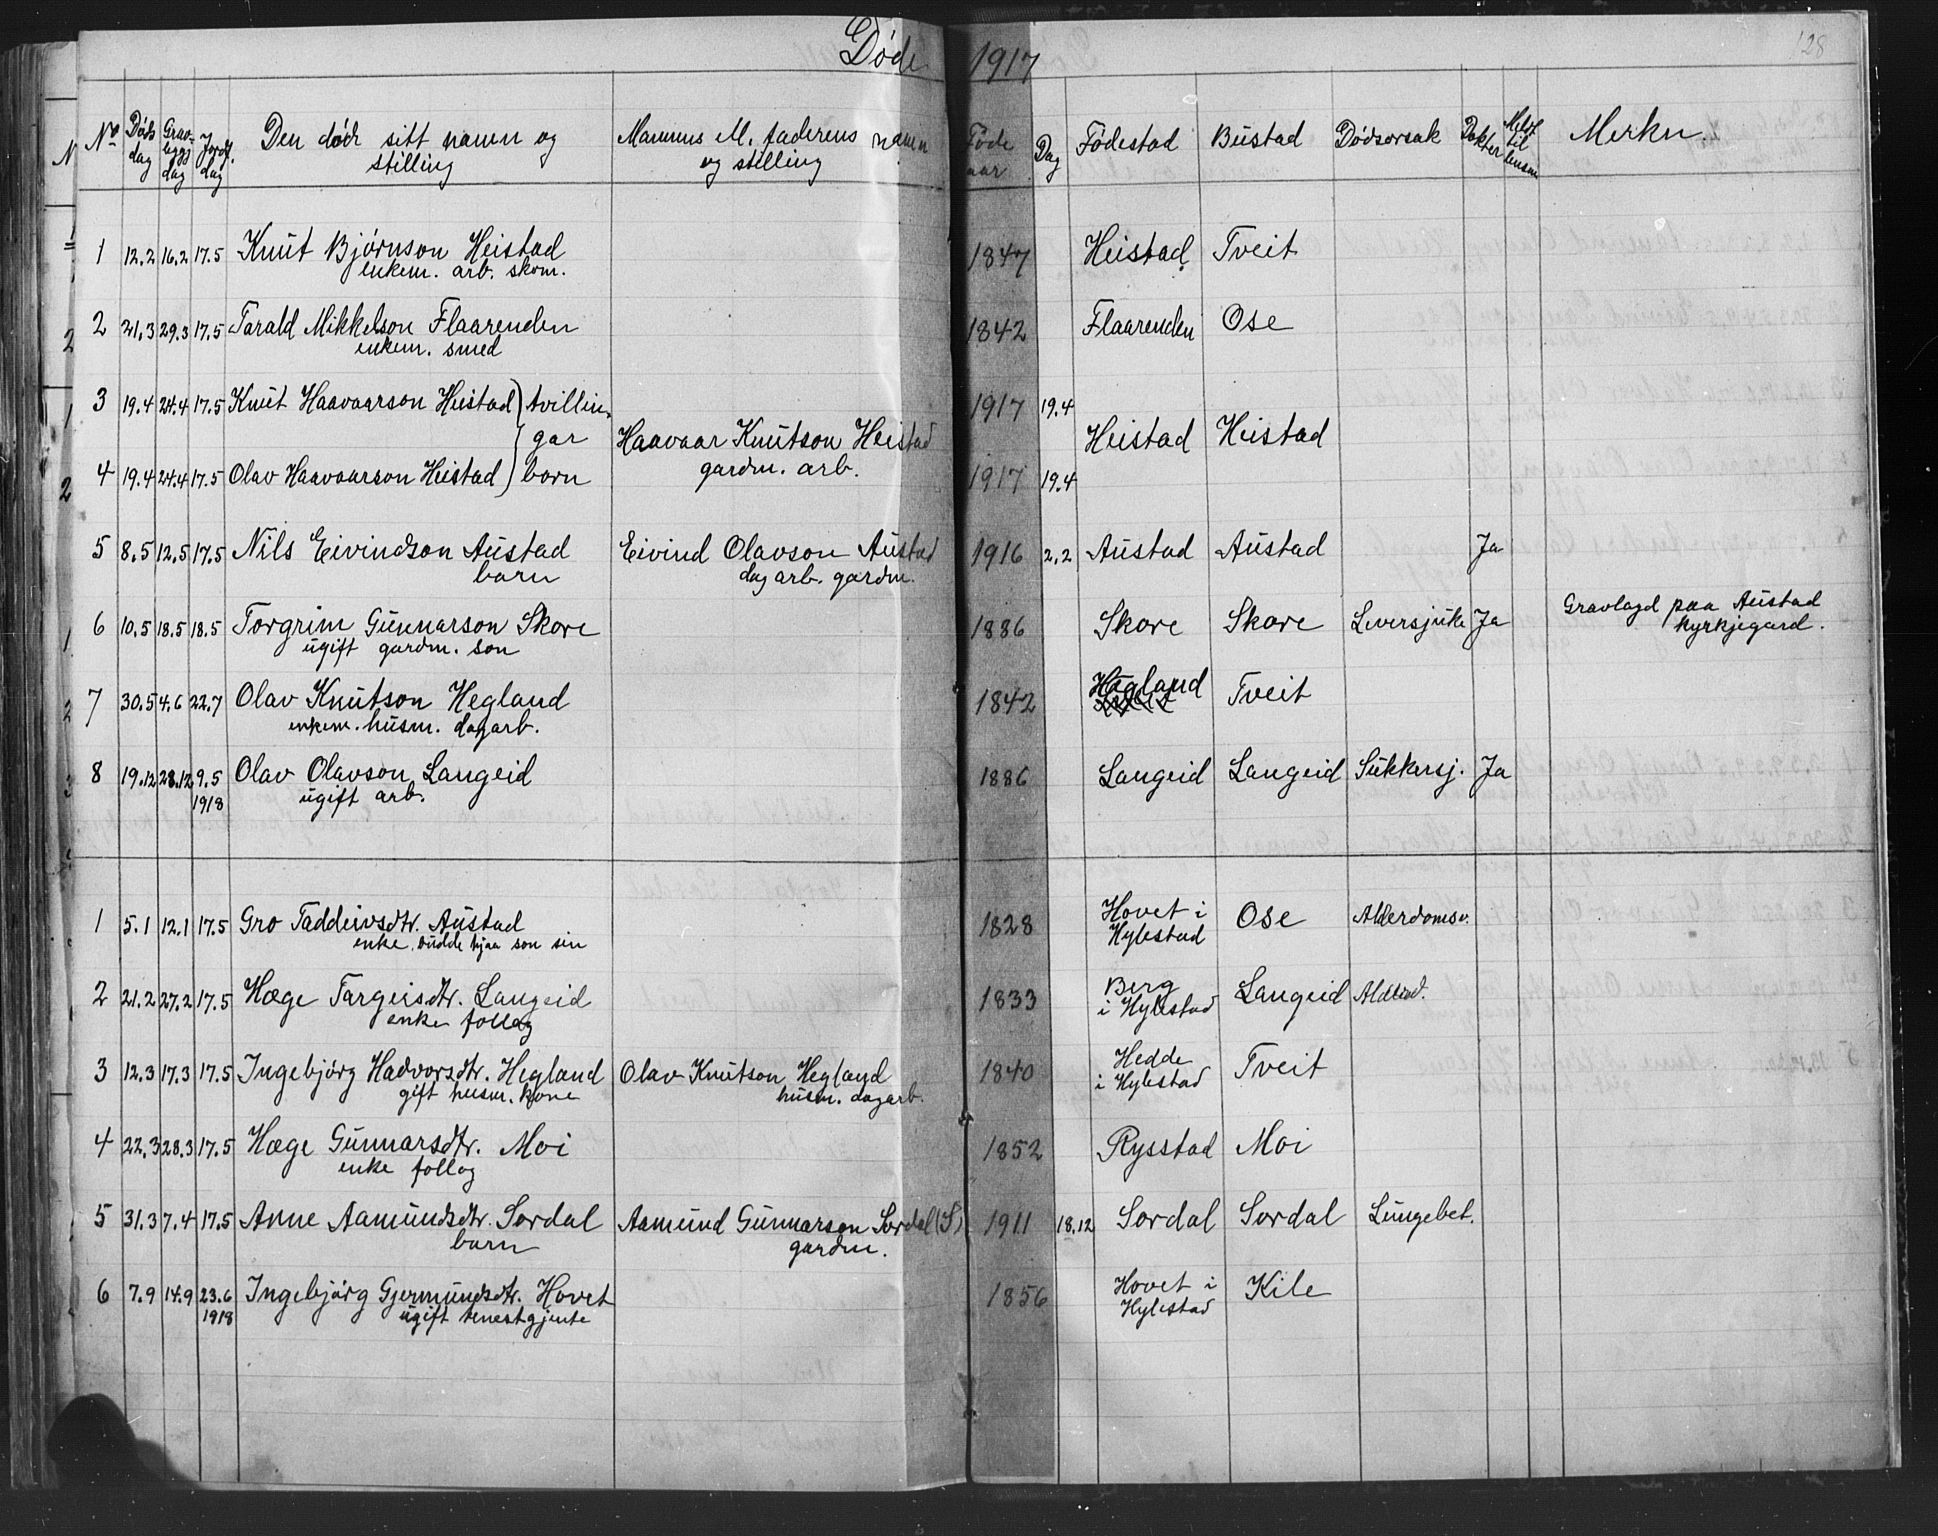 Døde 1917
128
No Døds dag Gravleggs dag Jordf. dag Den døde sitt namn og stilling Mannens M. faderens namn og stilling Føde aar Dag Fødestad Bustad Dødsorsak Dokter Meldt til lensm. Merkn.
1 12.2 16.2 17.5 Knut Bjørnson Heistad 1847 Heistad Tveit
enkem. arb. skom.
2 21.3 29.3 17.5 Tarald Mikkelson Flaarenden 1842 Flaarenden Ose
enkem. smed
3 19.4 24.4 17.5 Knut Haavaarson Heistad } tvillin- 1917 19.4
gar Haavaar Knutson Heistad Heistad Heistad
gardm. arb.
4 19.4 24.4 17.5 Olav Haavaarson Heistad } born 1917 19.4
5 8.5 12.5 17.5 Nils Eivindson Austad Eivind Olavson Austad 1916 2.2 Austad Austad Ja
barn dag arb. gardm.
6 10.5 18.5 18.5 Torgrim Gunnarson Skore 1886 Skore Skore Leversjuke Ja Gravlagd paa Austad
ugift gardm. son kyrkjegard.
7 30.5 4.6 22.7 Olav Knutson Hegland 1842 Hægland Tveit
enkem. husm. dagarb.
8 19.12 28.12 9.5 Olav Olavson Langeid 1886 Langeid Langeid Sukkersj. Ja
1918 ugift arb.
1 5.1 12.1 17.5 Gro Taddeivsdtr. Austad 1828 Hovet i Ose Alderdomsv.
enke. budde hjaa son sin Hylestad
2 21.2 27.2 17.5 Hæge Targeisdtr. Langeid 1833 Berg Langeid Alderd.
enke follog i Hylestad
3 12.3 17.3 17.5 Ingebjørg Hadvorsdtr. Hegland Olav Knutson Hegland 1840 Hedde Tveit
gift husm. kone husm. dagarb. i Hylestad
4 22.3 28.3 17.5 Hæge Gunnarsdtr. Moi 1852 Rysstad Moi
enke follog
5 31.3 7.4 17.5 Anne Aamundsdtr. Sordal Aamund Gunnarson Sordal (S) 1911 18.12 Sordal Sordal Lungebet.
barn gardm.
6 7.9 14.9 23.6 Ingebjørg Gjermundsdtr. Hovet 1856 Hovet i Kile
1918 ugift tenestgjente Hylestad